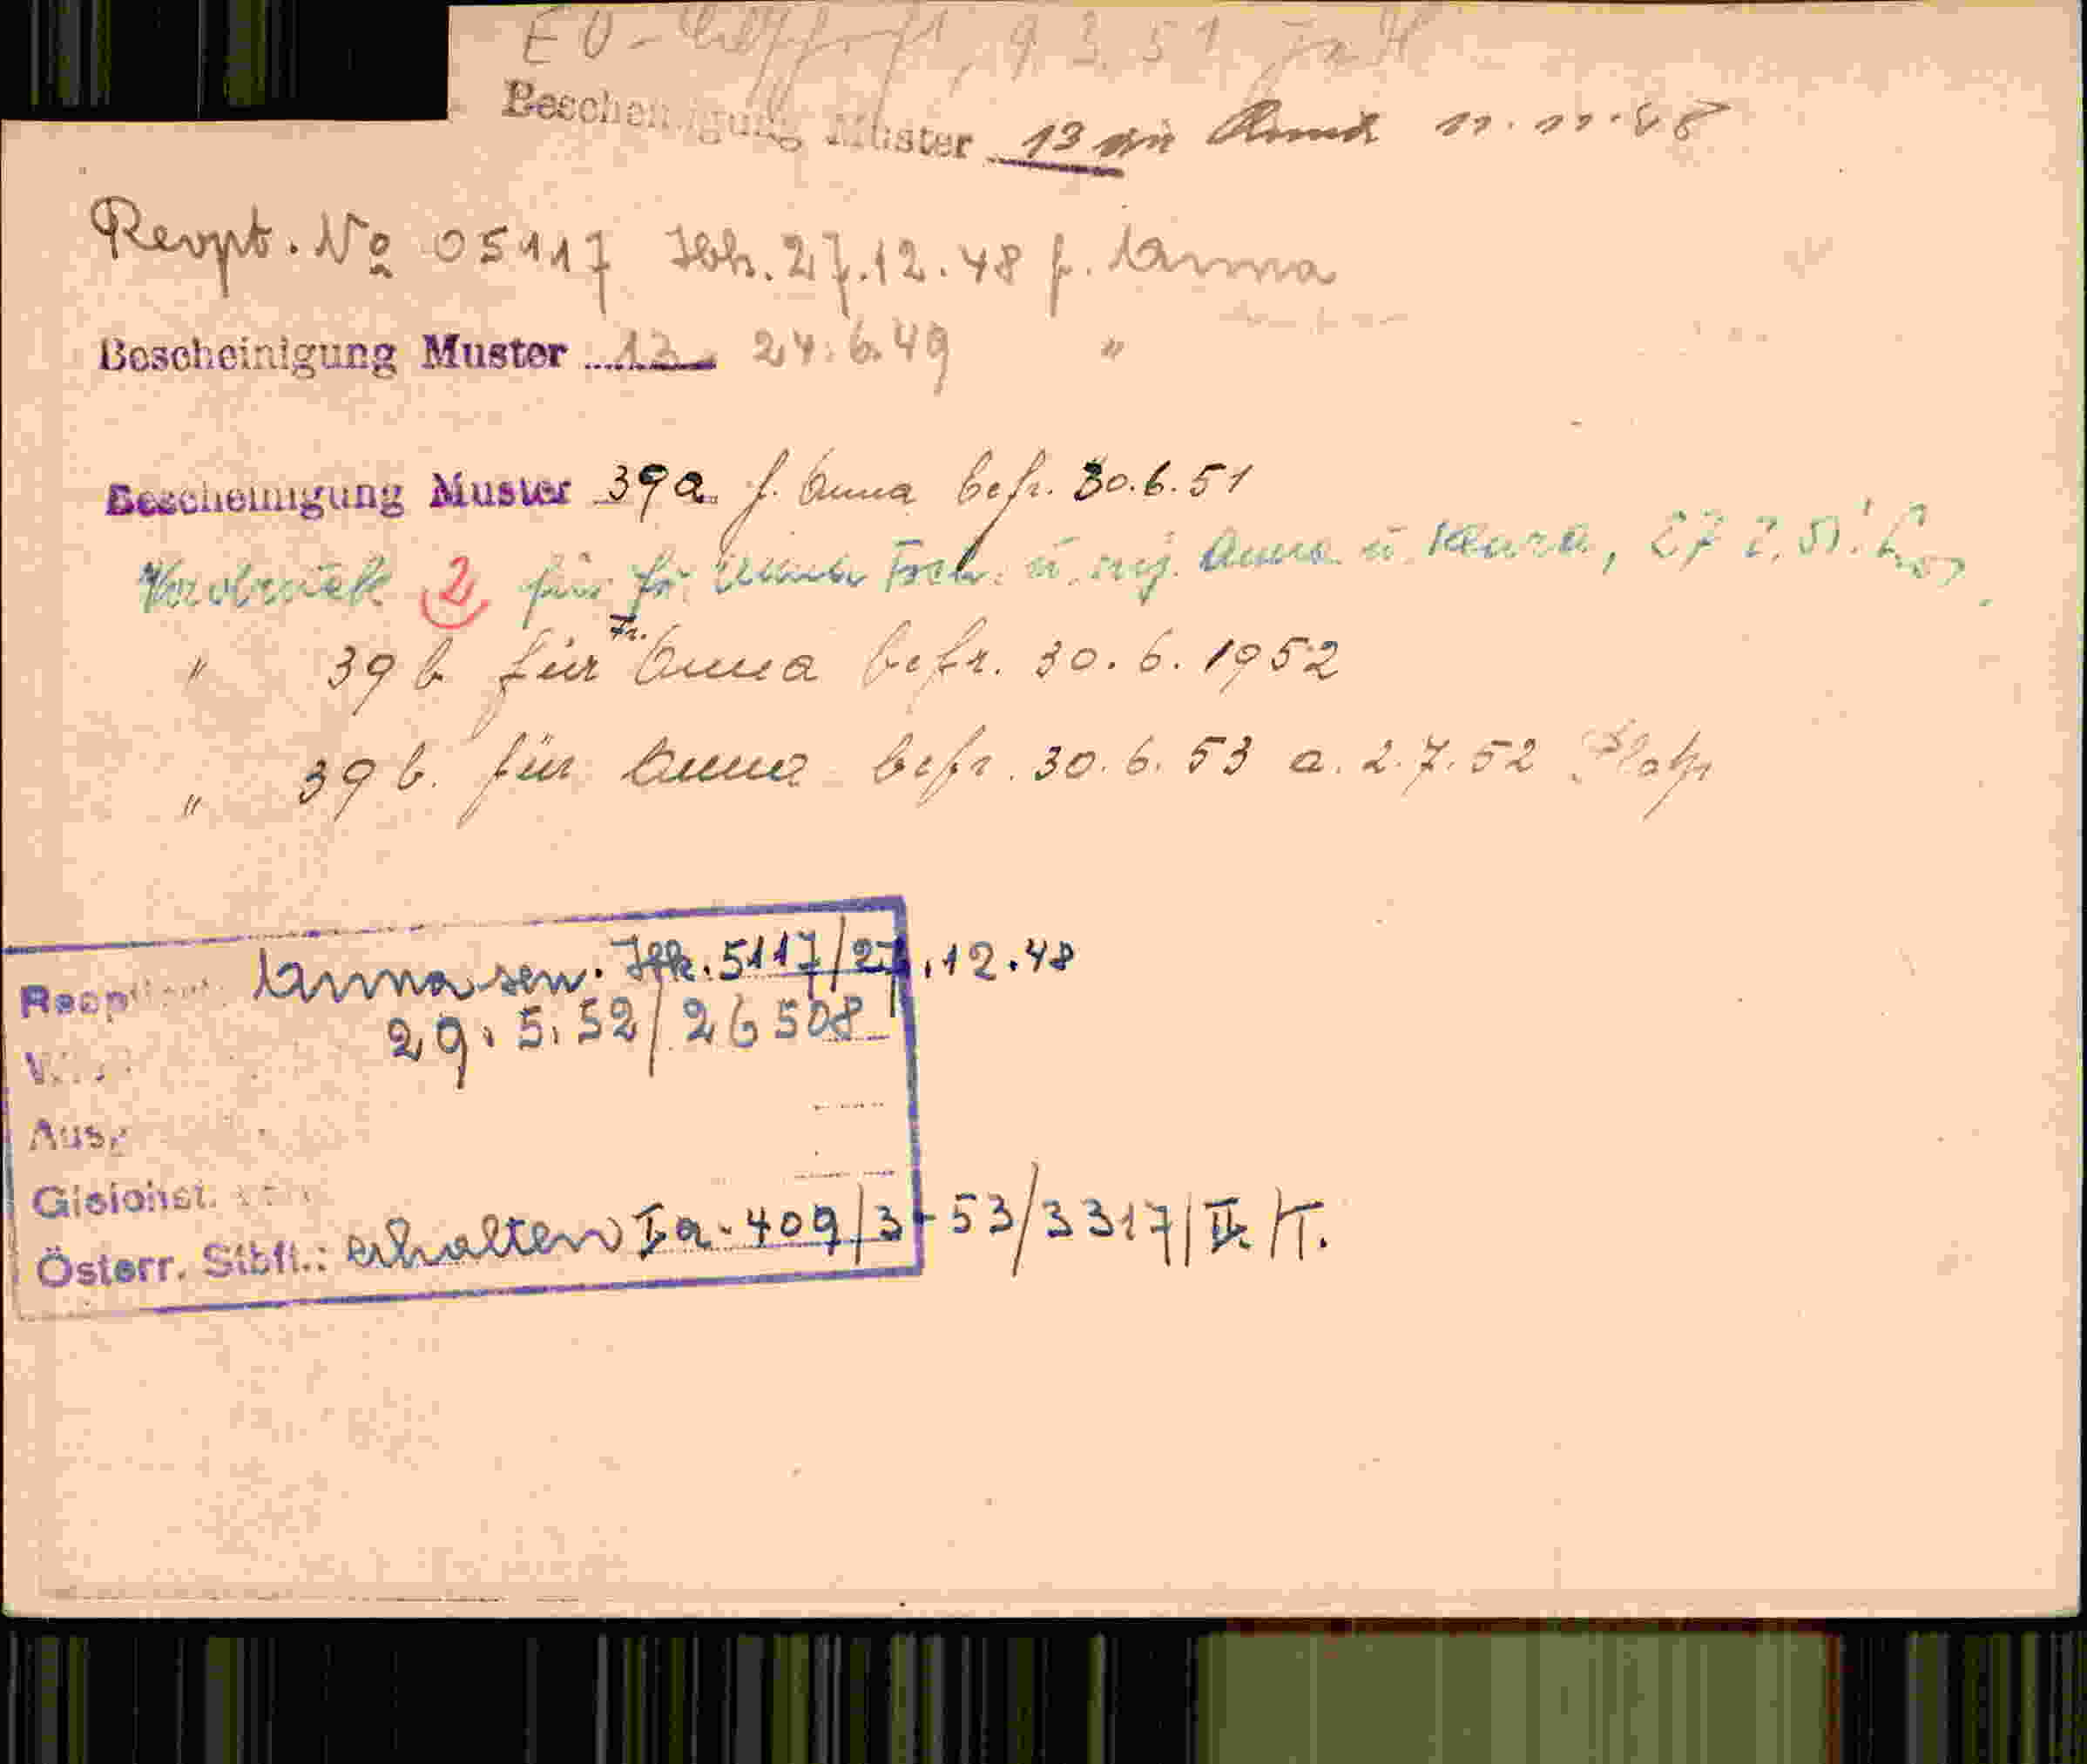 EU- 9.3.51
Bescheinigung Muster 13 11.11.48
Revpt. No 05117 Ibk. 27.12.48 f. Anna
Bescheinigung Muster 13 24.6.49 "
Bescheinigung Muster 39a f. Anna befr. 30.6.51
Vordruck 2 für Fr. u. mj. Anna u. Klara, 27.2.51.
" 39 b für Fr. Anna befr. 30.6.1952
" 39 b. für Anna befr. 30.6.53 a. 2.7.52
Anna sen. Ibk. 5117/27.12.48
29.5.52/26508
Ausg
Gleichst.
Österr. Stbft.: erhalten Ia-409/3-53/3317/II/T.